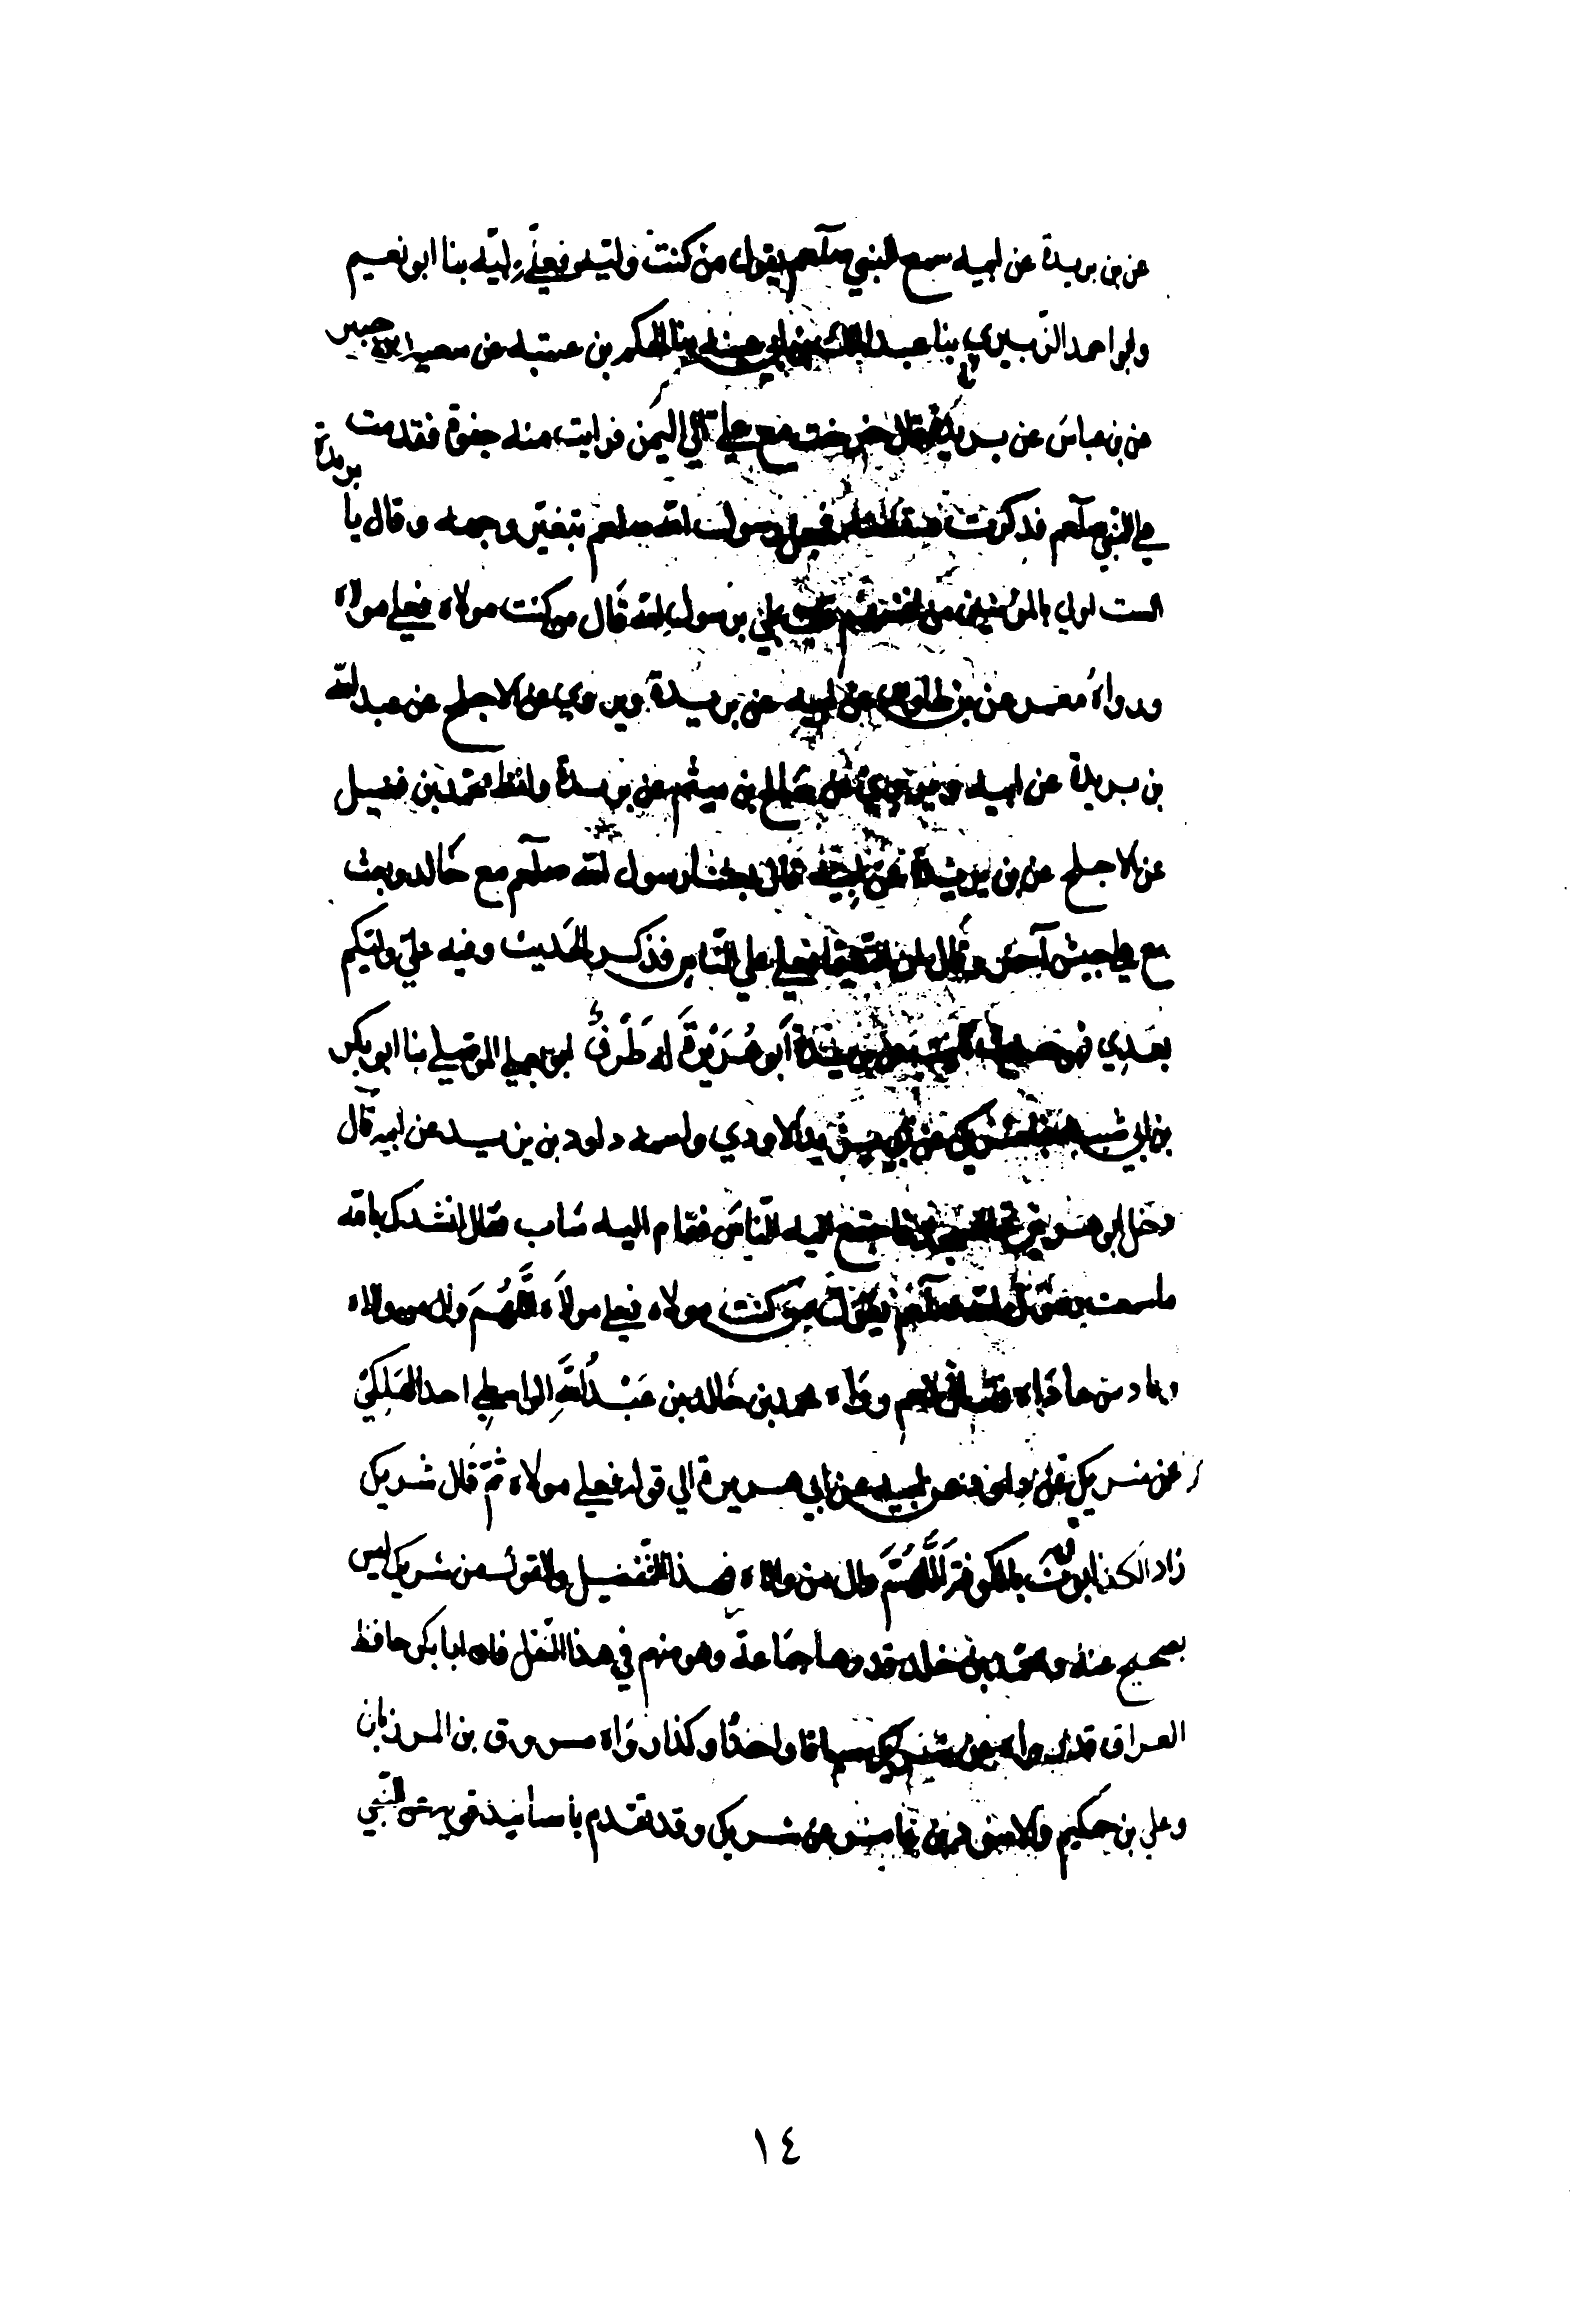 عن بن بريدة عن ابيه سمع النبي صلعم يقول من كنت وليه فعلي وليه بنا ابو نعيم
وابو احمد الزبيري بنا عبد الملك بن ابي عينه بنا الحكم بن عتبه عن سعيد بن جبير
عن بن عباس عن بريدة قال خرجت مع علي الي اليمن فرايت منه جفوة فقدمت
علي النبي صلعم فذكرت رسول الله صلعم يتغير وجهه وقال يا بريدة
الست اولي بالمؤمنين من انفسهم علي يا رسول الله قال من كنت مولاه فعلي مولاه
ورواه معمر عن بن طاوس عن ابيه عن بريدة ويروي عن الاجلح عن عبد الله
بن بريدة عن ابيه ويروي عن صالح بن ميثم عن بريدة ولفظ محمد بن فضيل
عن الاجلح عن بن بريدة عن ابيه قال بعثنا رسول الله صلعم مع خالد وبعث
مع علي جيش آخر وقال ان التقيتما فعلي علي الناس فذكر الحديث وفيه علي وليكم
بعدي أبو هُرَيْرَةَ لَهُ طُرُقٌ ابو يعلي الموصلي بنا ابو بكر
بن ابي شيبه بنا شريك عن ابي يزيد الاودي واسمه داود بن يزيد عن ابيه قال
دخل ابو هريرة المسجد فاجتمع اليه الناس فقام اليه شاب فقال انشدك بالله
اسمعت رسول الله صلعم يقول من كنت مولاه فعلي مولاه اللَّهُمَ وال من والاه
وعاد من عاداه فقال نعم رواه محمد بن خالد بن عَبْدُ اللَّهِ الواسطي احد الهلكي
عن شريك عن داود عن ابيه عن ابي هريرة الي قوله فعلي مولاه ثم قال شريك
زاد بالكوفة اللَّهُمَّ وال من والاه فهذا التفضيل والقول من شريك ليس
بصحيح عنه ومحمد بن خالد قد وهاه جماعة وهو منهم في هذا النقل فان ابا بكر حافظ
العراق قد رواه عن شريك سياقا واحدًا وكذا رواه مسروق بن المرزبان
وعلي بن حكيم والاسود بن عامر عن شريك وقد تقدم باسانيد قوية عن النبي
١٤